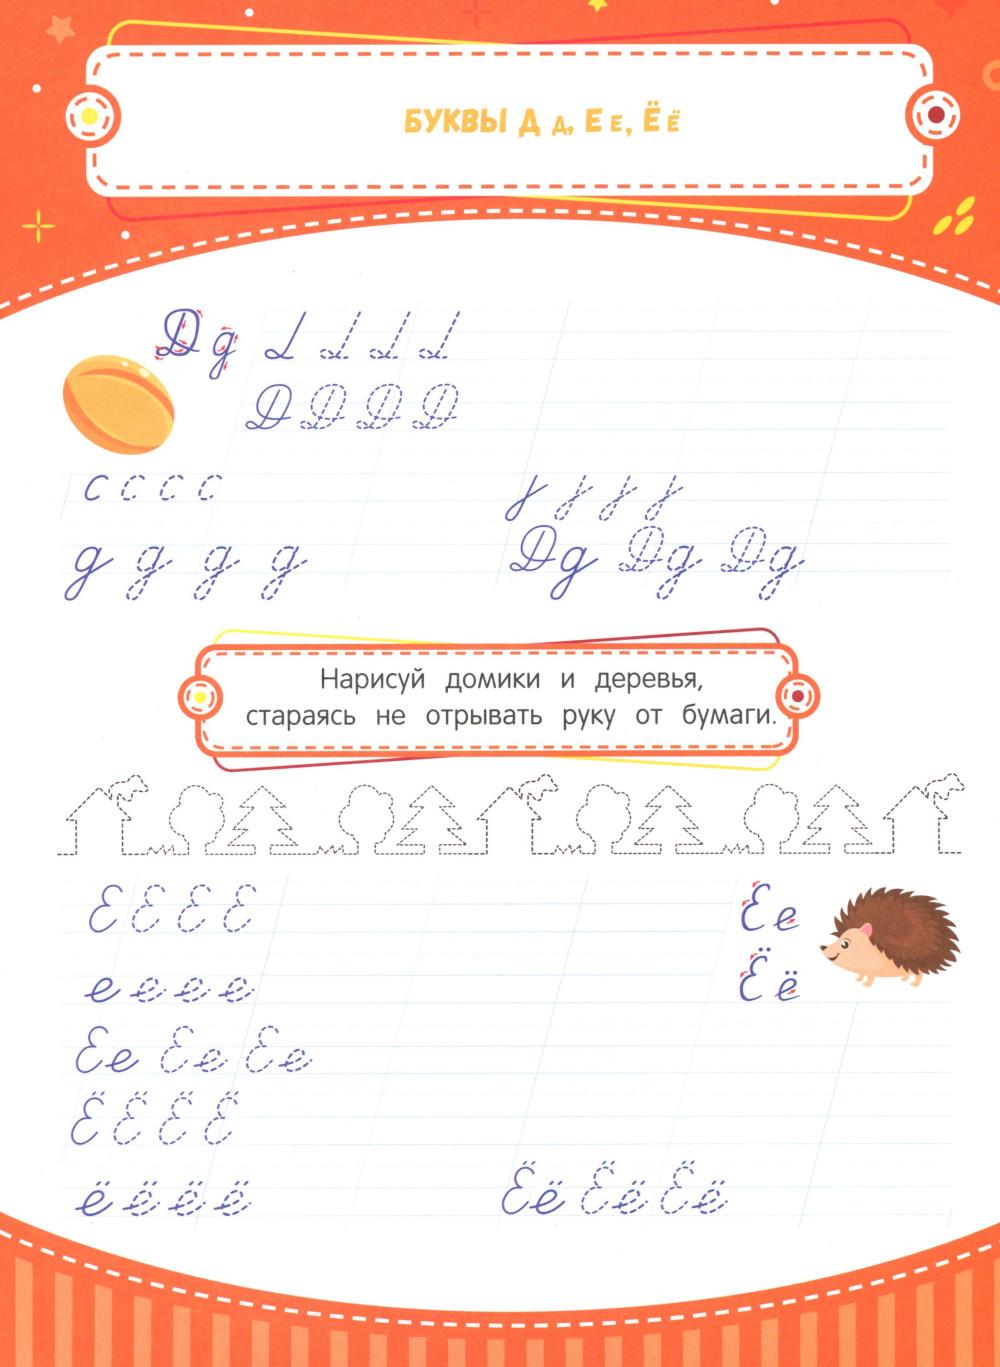 БУКВЫ Д д, Е е, Ё ё
Д д
Д Д Д Д
с с с с
д д д д
Дд Дд Дд
Нарисуй домики и деревья,
стараясь не отрывать руку от бумаги.
Е Е Е Е
Е е
Ё ё
е е е е
Ее Ее Ее
Ё Ё Ё Ё
ё ё ё ё
Ёё Ёё Ёё